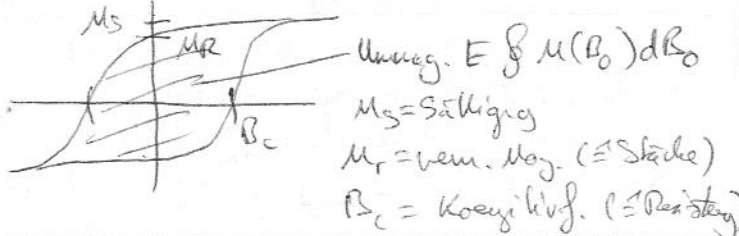 M_S
M_R
Ummag. E ∮ M(B_0) dB_0
B_c
M_S = Sättigung
M_r = rem. Mag. (≙ Stärke)
B_c = Koerzitivf. (≙ Resistenz)